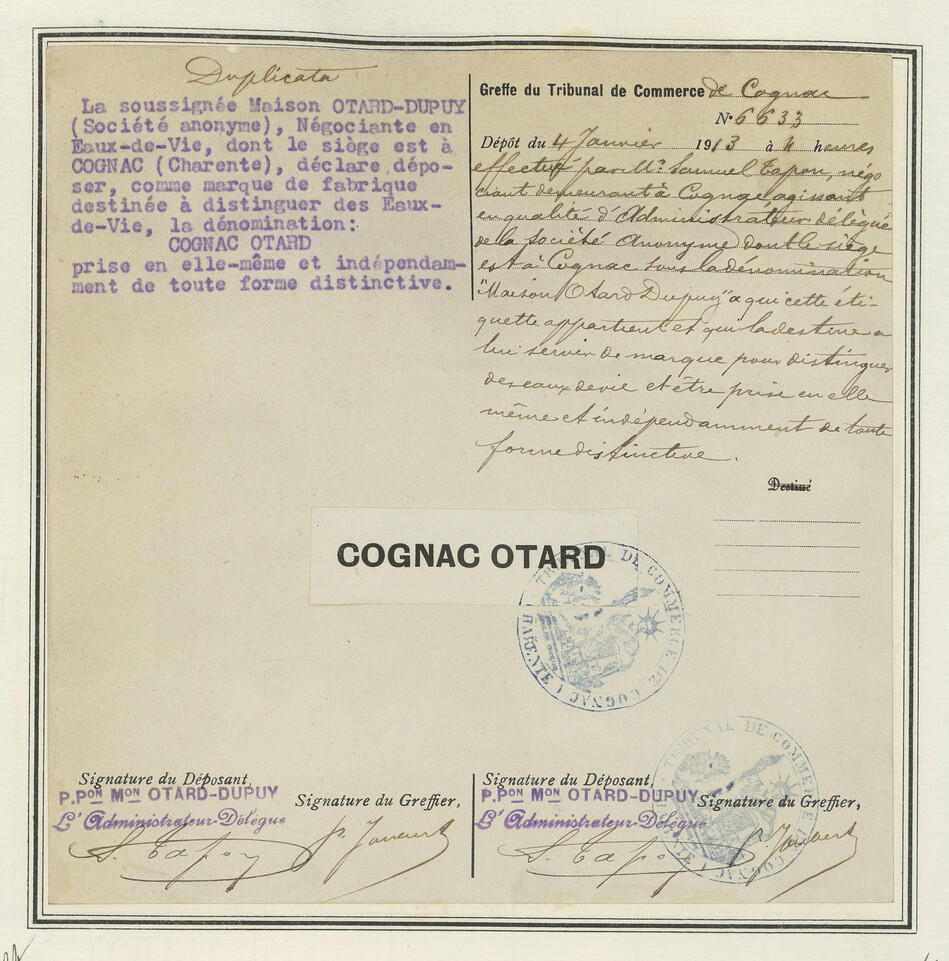 Duplicata
La soussignée Maison OTARD-DUPUY
(Société anonyme), Négociante en
Eaux-de-Vie, dont le siège est à
COGNAC (Charente), déclare dépo-
ser, comme marque de fabrique
destinée à distinguer des Eaux-
de-Vie, la dénomination:
COGNAC OTARD
prise en elle-même et indépendam-
ment de toute forme distinctive.
Greffe du Tribunal de Commerce de Cognac
N° 6633
Dépôt du 4 Janvier 1913 à 4 heures
effectué par Mr. Samuel Tapon, négo
ciant demeurant à Cognac, agissant
en qualité d'Administrateur délégué
de la Société Anonyme dont le siège
est à Cognac sous la dénomination
"Maison Otard Dupuy" a qui cette éti-
quette appartient et qui la destine a
lui servir de marque pour distinguer
des eaux de vie et être prise en elle
même et indépendamment de toute
forme distinctive.
Destiné
COGNAC OTARD
TRIBUNAL DE COMMERCE DE COGNAC (CHARENTE)
Signature du Déposant,
P.PON MON OTARD-DUPUY
L'Administrateur-Délégué
S. Tapon
Signature du Greffier,
Signature du Déposant,
P.PON MON OTARD-DUPUY
L'Administrateur-Délégué
S. Tapon
Signature du Greffier,
TRIBUNAL DE COMMERCE DE